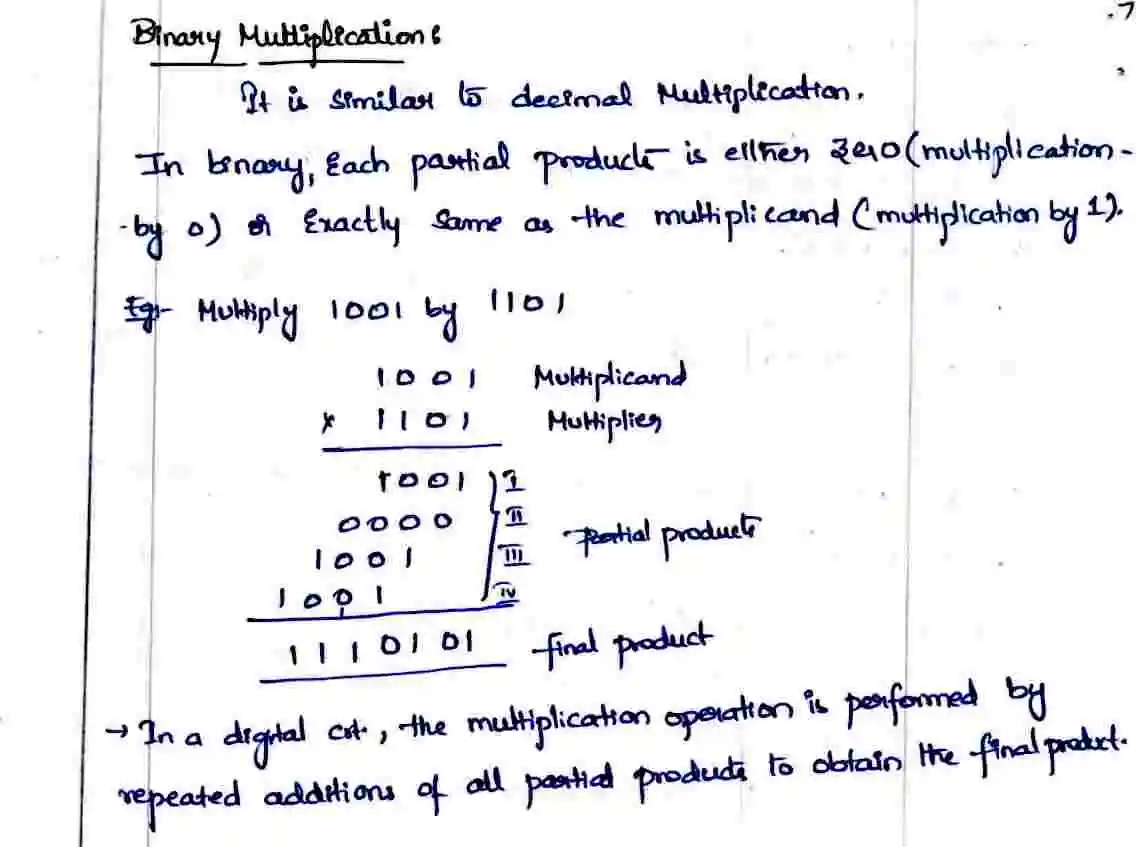 .7
Binary Multiplication:
It is similar to decimal Multiplication.
In binary, Each partial product is either zero (multiplication-
-by 0) or Exactly same as the multiplicand (multiplication by 1).
Eg:- Multiply 1001 by 1101
1 0 0 1 Multiplicand
x 1 1 0 1 Multiplier
1 0 0 1 I
0 0 0 0 II
partial products
1 0 0 1 III
1 0 0 1 IV
1 1 1 0 1 0 1 final product
→ In a digital ckt, the multiplication operation is performed by
repeated additions of all partial products to obtain the final product.